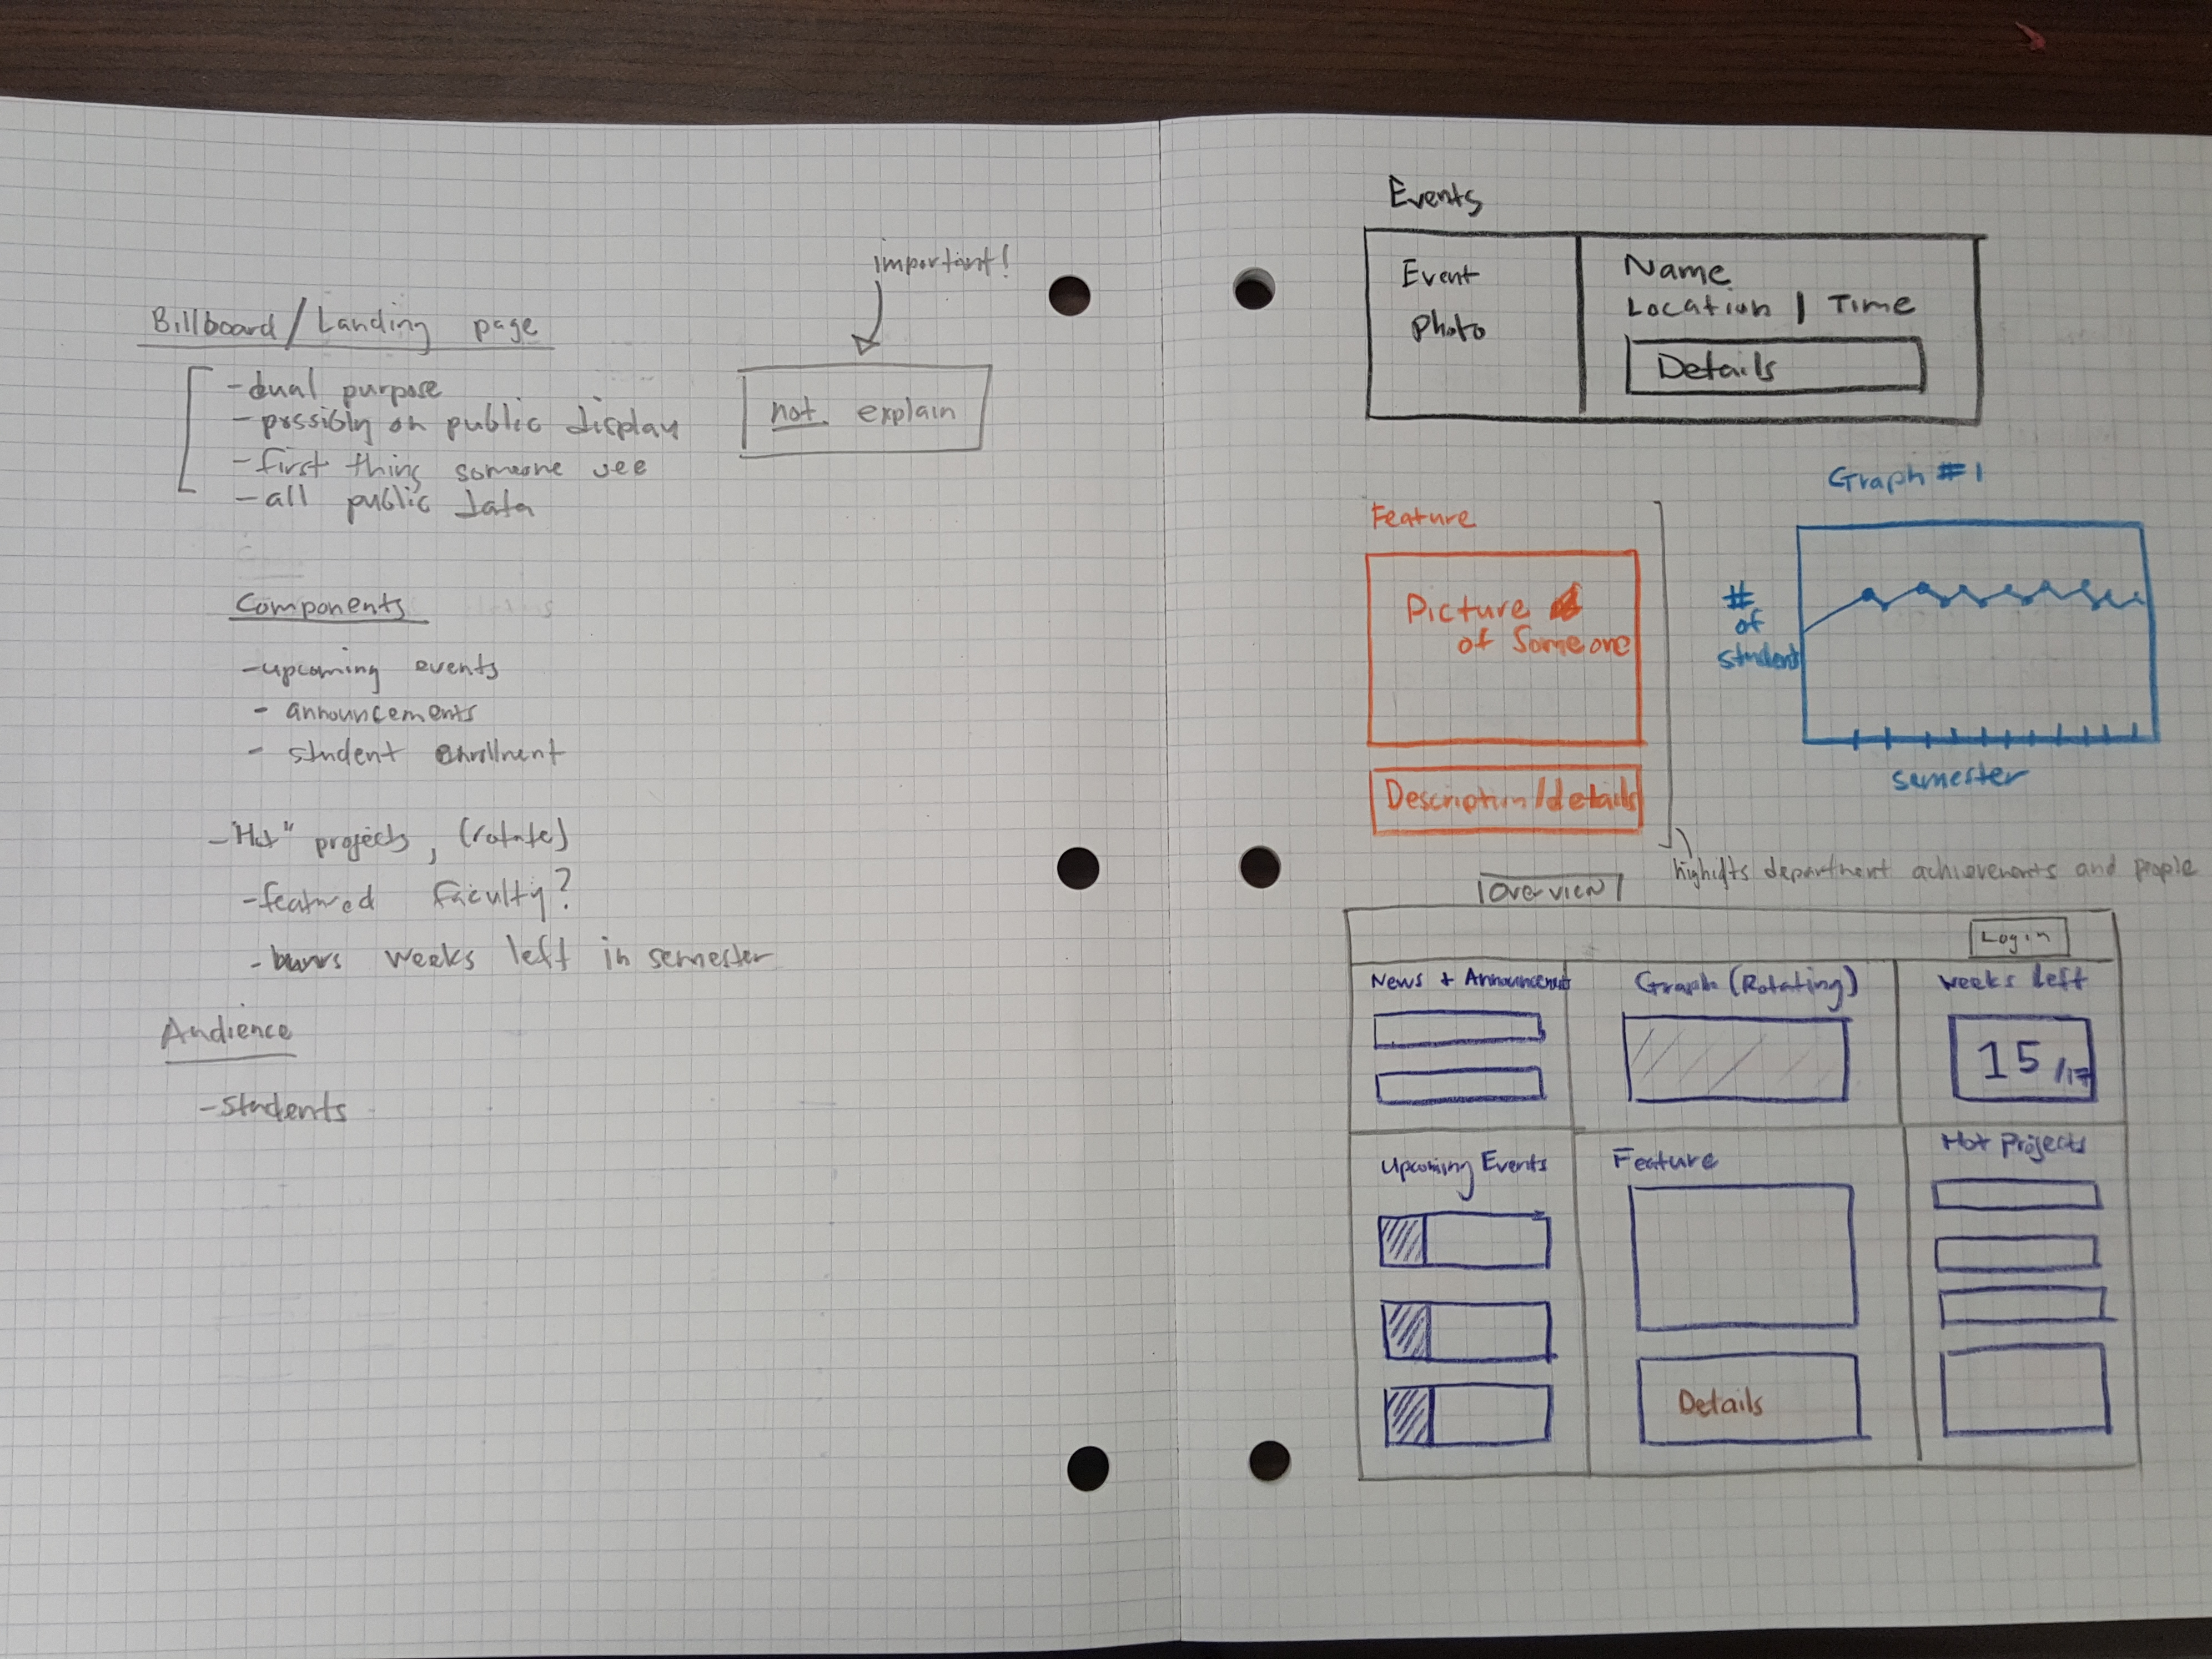 important!
Billboard/Landing page
-dual purpose
-possibly on public display
-first thing someone see
-all public data
not explain
Components
-upcoming events
- announcements
- student enrollment
-"Hot" projects, (rotate)
-featured faculty?
- weeks left in semester
Audience
-students
Events
Event
Photo
Name
Location | Time
Details
Feature
Picture
of Someone
Description/details
Graph #1
#
of
student
semester
highlights department achievements and people
Overview
Login
News + Announcement
Graph (Rotating)
weeks left
15/17
Upcoming Events
Feature
Details
Hot Projects